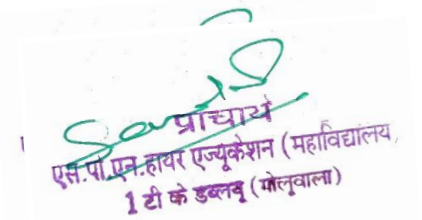 प्राचार्य
एस.पी.एन.हायर एज्यूकेशन (महाविद्यालय
1 टी के डब्लयू (गोलूवाला)